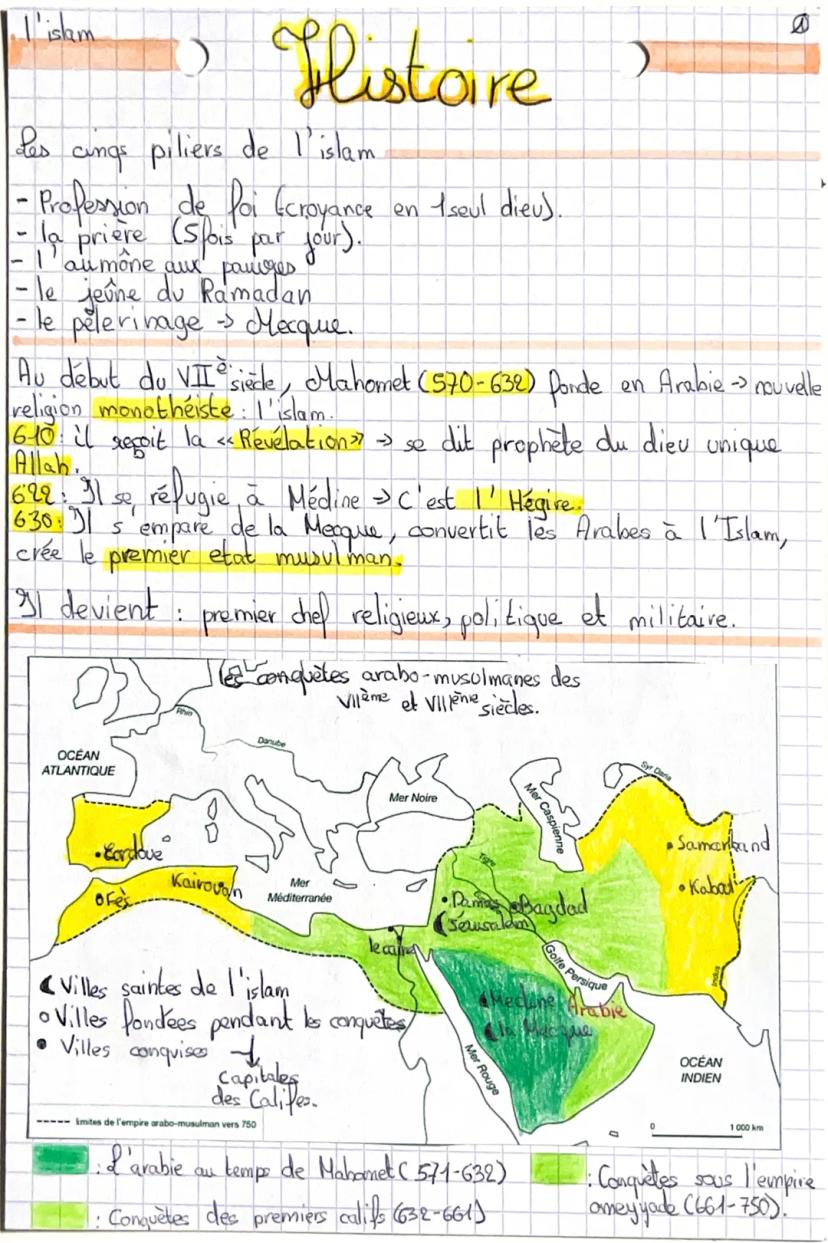 l'islam
Histoire
Les cinqs piliers de l'islam
- Profession de foi (croyance en 1 seul dieu).
- la prière (5 fois par jour).
- l'aumône aux pauvres
- le jeûne du Ramadan
- le pèlerinage → Mecque.
Au début du VIIè siècle, Mahomet (570-632) fonde en Arabie → nouvelle
religion monothéiste : l'islam.
610 : il reçoit la «Révélation» → se dit prophète du dieu unique
Allah.
622 : Il se réfugie à Médine → C'est l'Hégire.
630 : Il s'empare de la Mecque, convertit les Arabes à l'Islam,
crée le premier etat musulman.
Il devient : premier chef religieux, politique et militaire.
Les conquètes arabo-musulmanes des
VIIème et VIIIème siècles.
Rhin
Danube
OCÉAN
ATLANTIQUE
Mer Noire
Mer Caspienne
Syr Daria
Cordoue
Samarkand
Kaboul
Fès
Kairouan
Mer
Méditerranée
Tigre
Damas
Bagdad
Jérusalem
le caire
Golfe Persique
Indus
Medine
Arabie
la Mecque
Mer Rouge
OCÉAN
INDIEN
Villes saintes de l'islam
Villes fondées pendant les conquêtes
Villes conquises
Capitales
des Califes.
limites de l'empire arabo-musulman vers 750
0 1 000 km
: L'arabie au temps de Mahomet (571-632)
: Conquètes des premiers califs (632-661)
: Conquètes sous l'empire
omeyyade (661-750).